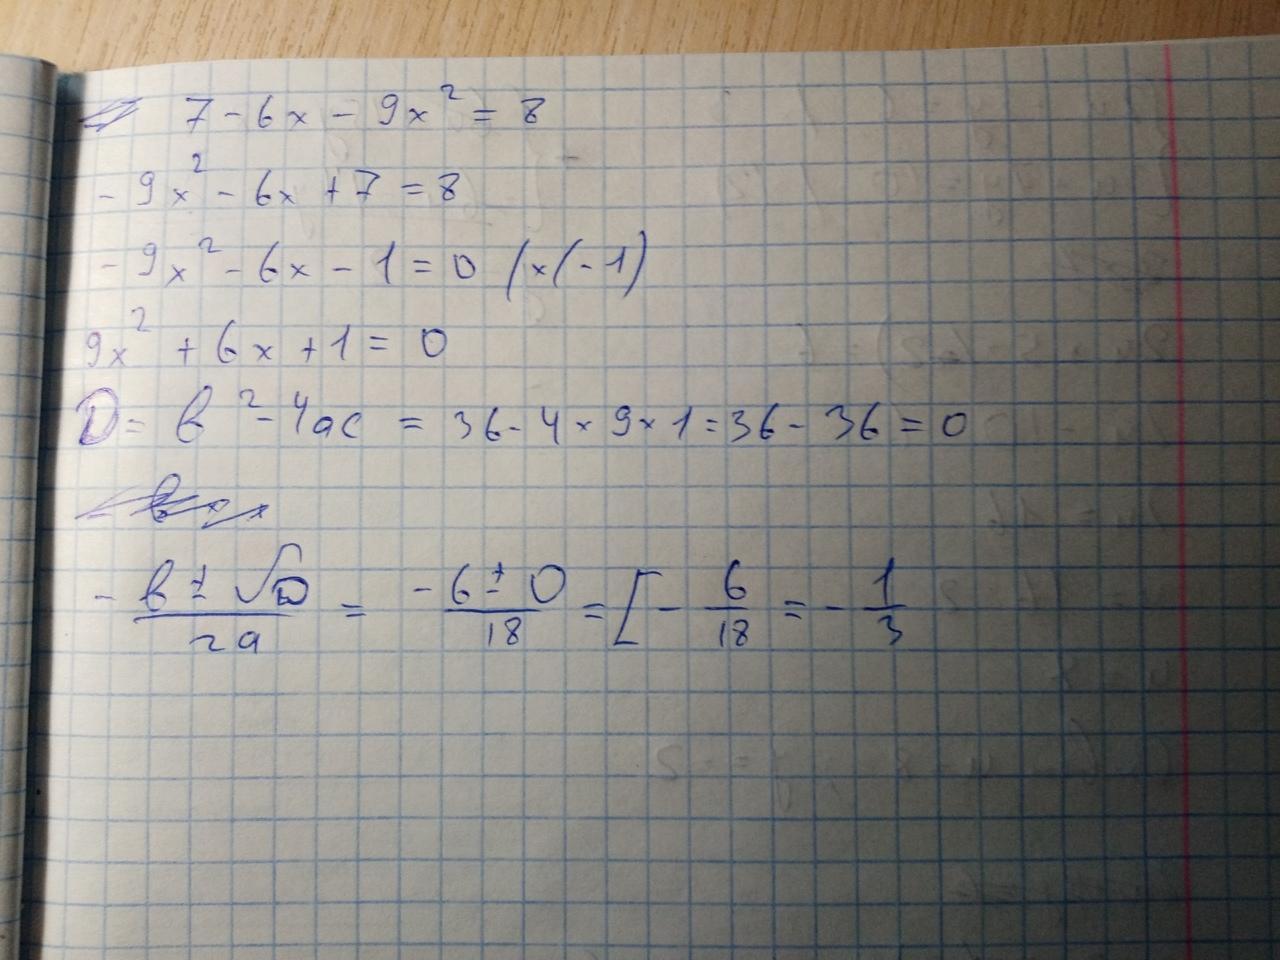 7 - 6x - 9x² = 8
- 9x² - 6x + 7 = 8
- 9x² - 6x - 1 = 0 /x(-1)
9x² + 6x + 1 = 0
D = b² - 4ac = 36 - 4 × 9 × 1 = 36 - 36 = 0
(- b ± √D)/(2a) = (- 6 ± 0)/18 = [ - 6/18 = - 1/3